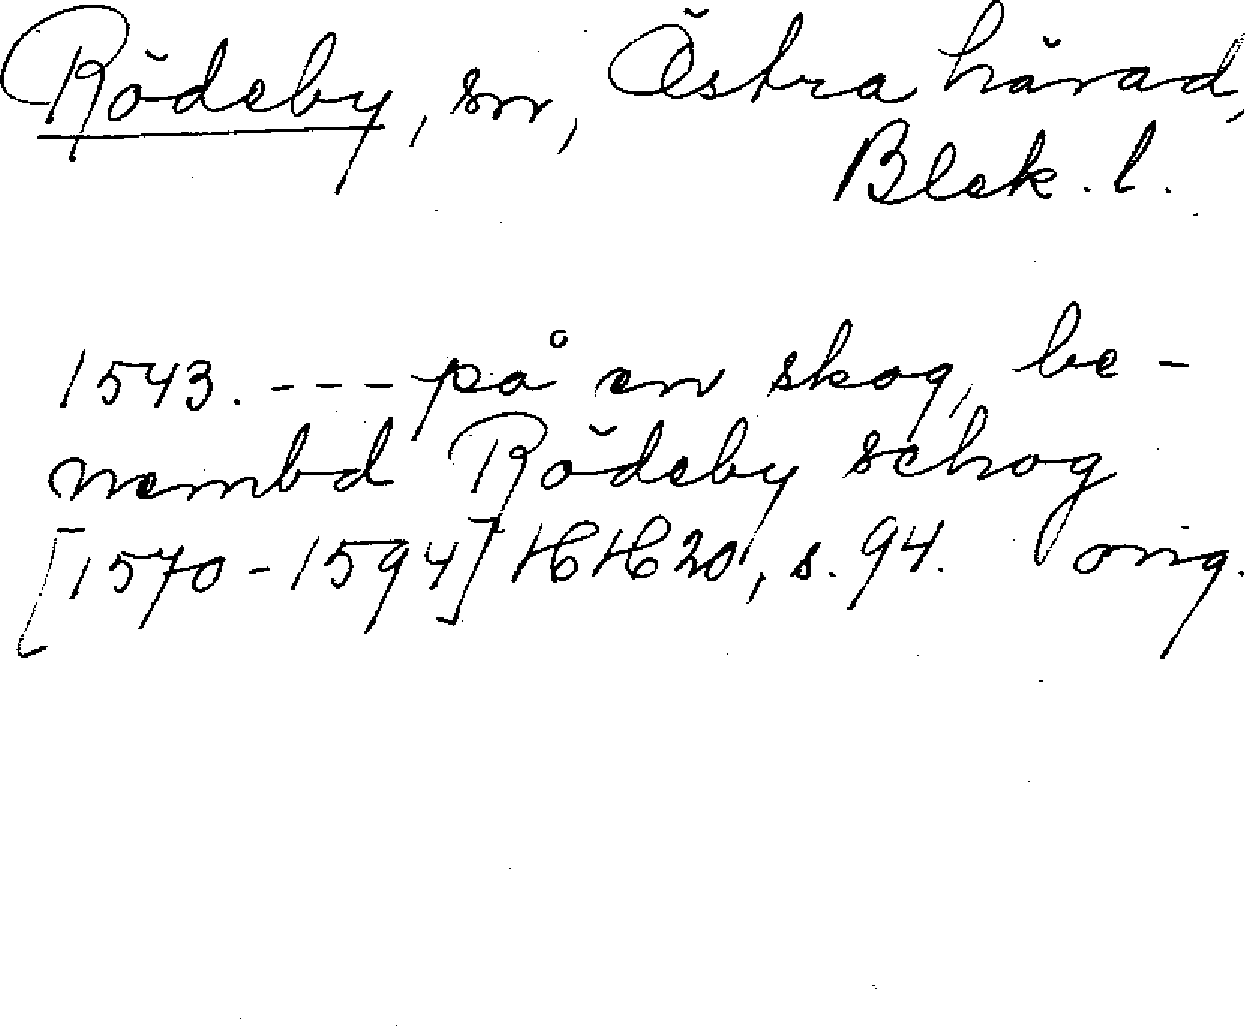 Rödeby, sn, Östra härad,
Blek. l.
1543. --- på en skog, be-
nembd Rödeby schog
[1570-1594] HH 20, s. 94. orig.